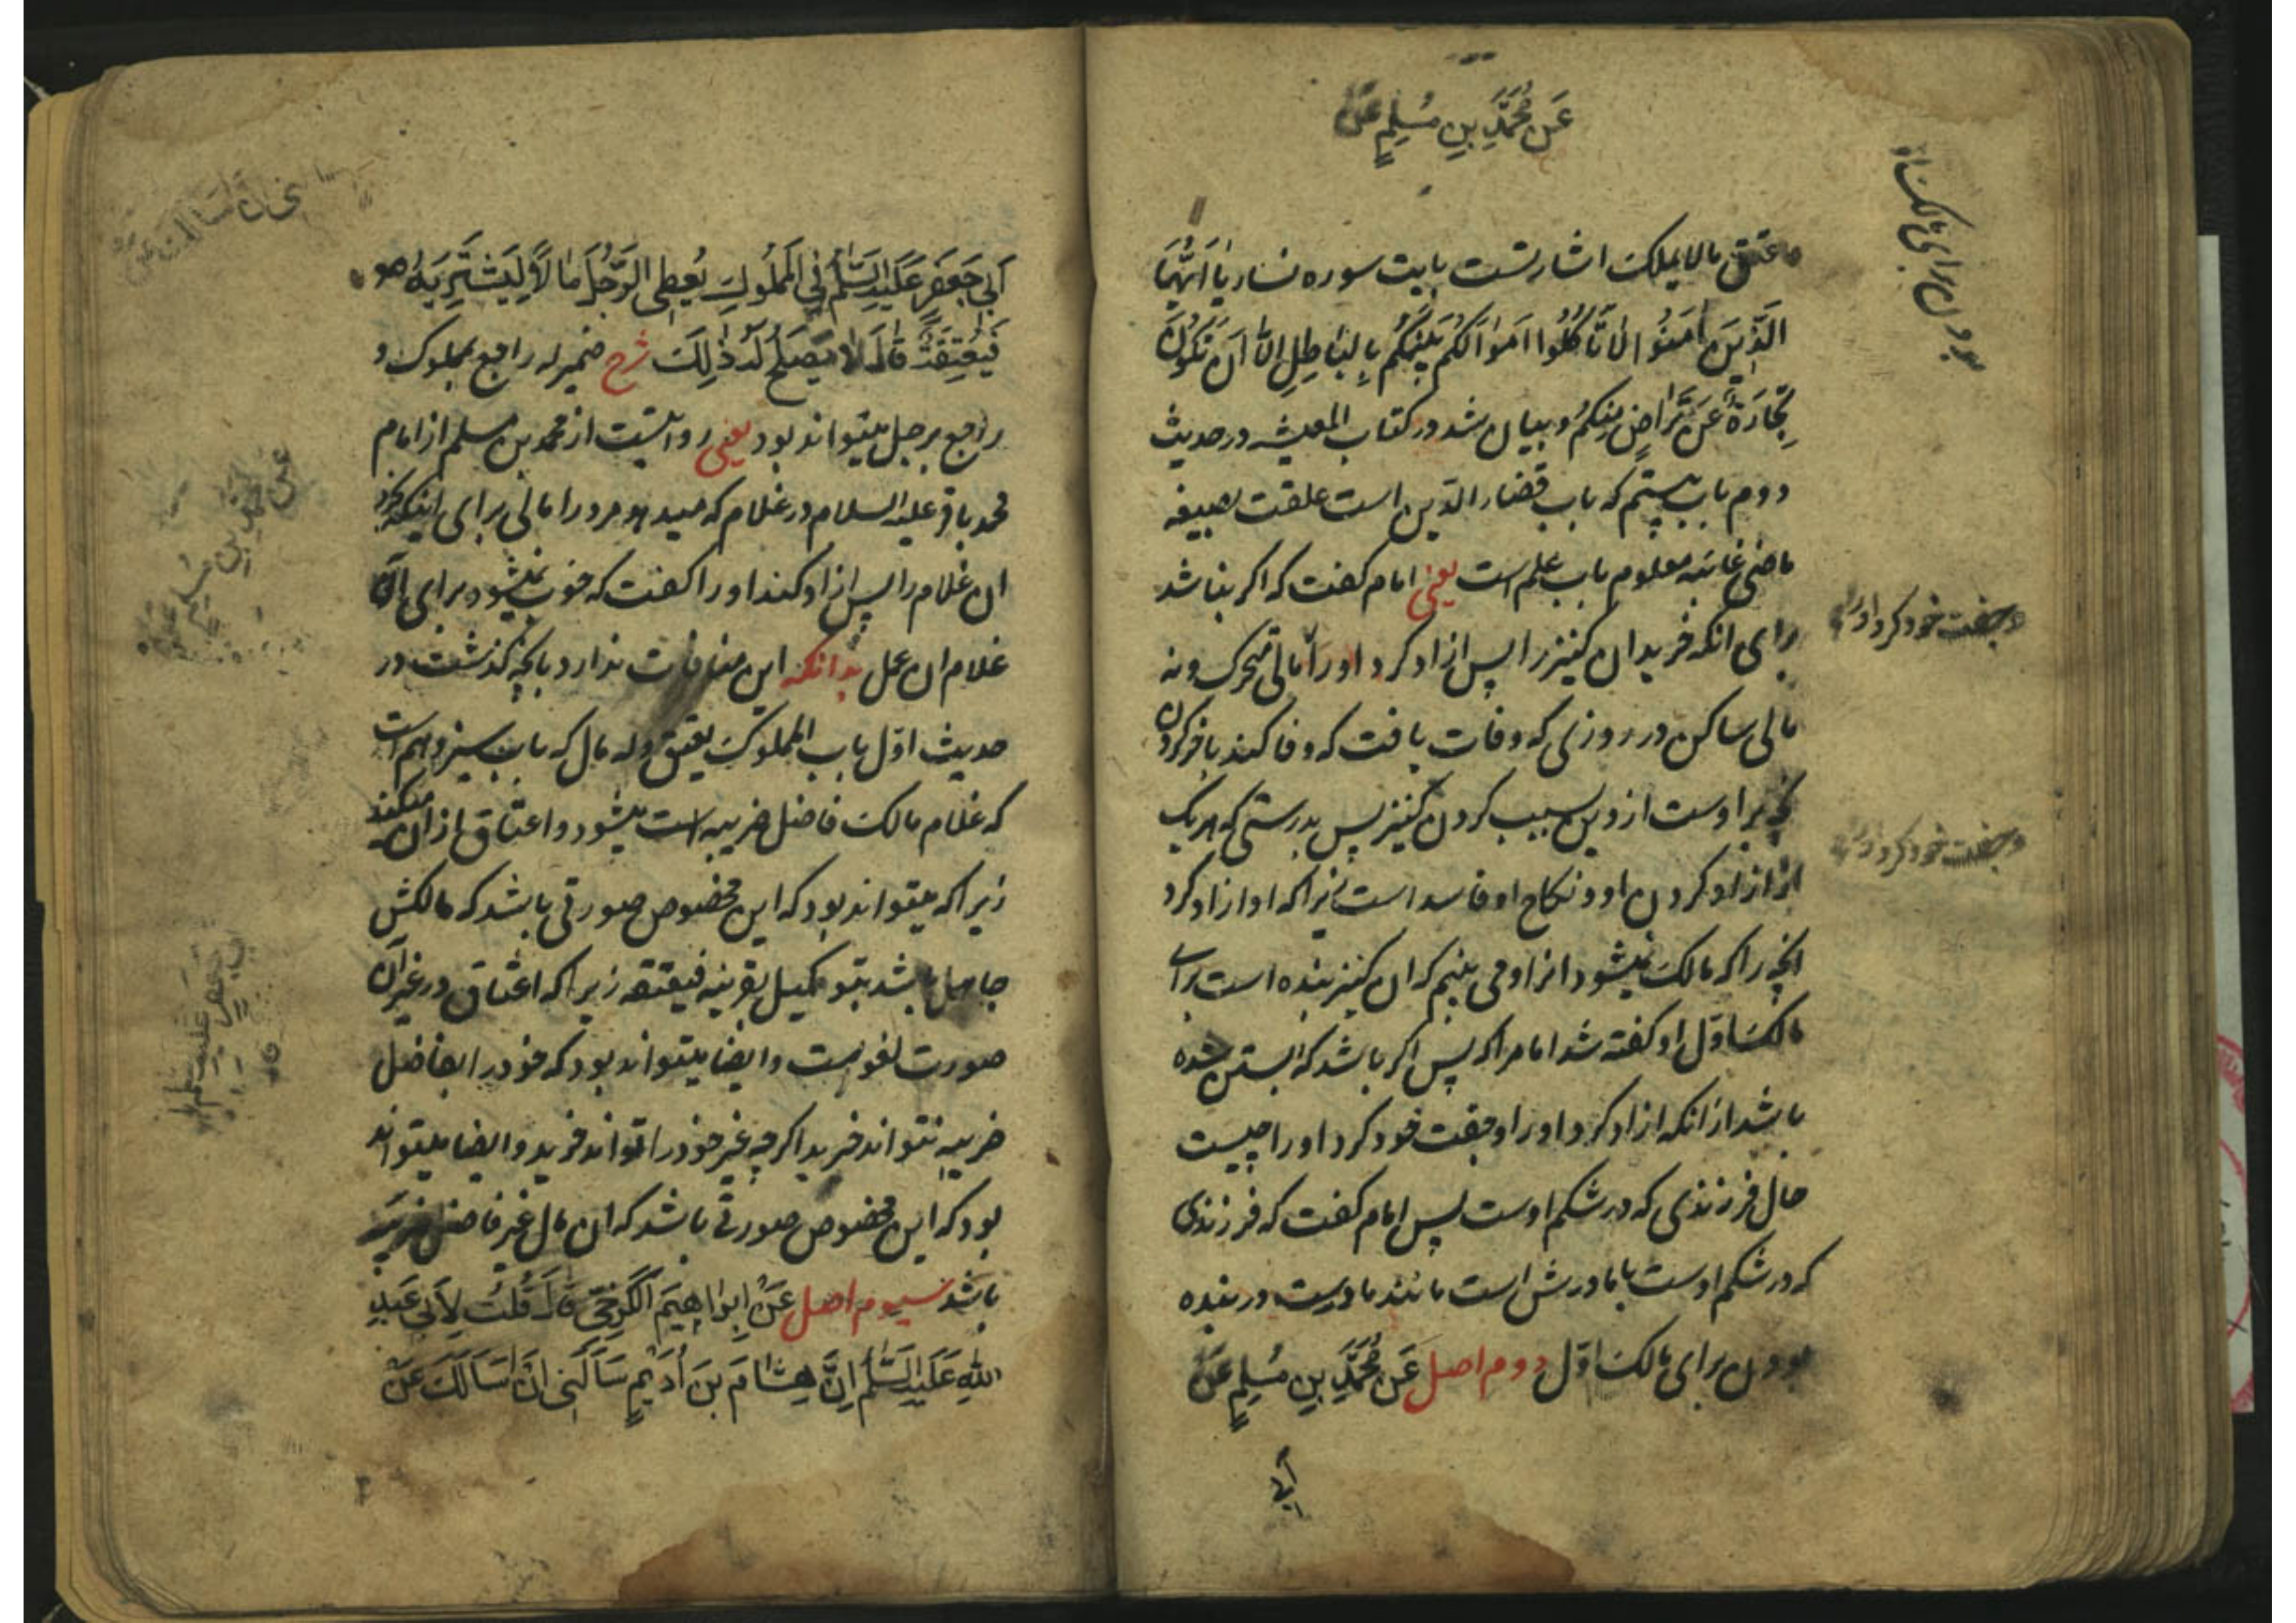 عَنْ مُحَمَّدِ بنِ مُسْلِمٍ عَنْ
عتق مالا یملک اشارتست بایت سوره نساء یا اَیُّهَا
الَّذِینَ اٰمَنُوا لَا تَأکُلُوا اَمْوَالَکُمْ بَیْنَکُمْ بِالْبَاطِلِ اِلَّا اَنْ تَکُونَ
تِجَارَةً عَنْ تَرَاضٍ مِنْکُمْ و بیان شد در کتاب المعیشه در حدیث
دوم باب بیستم که باب قضاء الدّین است علقت بصیغه
ماضی غائبه معلوم باب علم است یعنی امام کفت که اکر بنا شد
برای انکه خرید ان کنیز را پس ازاد کرد او را مالی متحرک و نه
مالی ساکن در روزی که وفات یافت که وفا کند
انچه بر اوست از دین بسبب کردن کنیز پس بدرستی که هر یک
از ازاد کردن او و نکاح او فاسد است زیرا که او ازاد کرد
انچه را که مالک نمیشود انرا و می بینم که ان کنیز بنده است برای
مالک اوّل او کفته شد امام را که پس اکر باشد که ابستن شده
باشد از انکه ازاد کرد او را و جفت خود کرد او را چیست
حال فرزندی که در شکم اوست پس امام کفت که فرزندی
که در شکم اوست با مادرش است مانند مادرست در بنده
بودن برای مالک اوّل دوم اصل عَنْ مُحَمَّدِ بنِ مُسْلِمٍ عَنْ
اَبی
بودن برای مالک
و جفت خود کرد او را
و جفت خود کرد او را
اَبِی جَعْفَرٍ عَلَیْهِ السَّلَمُ فِی الْمَمْلُوكِ یُعْطِی الرَّجُلَ مَالًا لِیَشْتَرِیَهُ
فَیُعْتِقَهُ قَالَ لَا یَصْلُحُ لَهُ ذٰلِكَ شرح ضمیر له راجع بمملوک و
راجع برجل میتواند بود یعنی روایتست از محمد بن مسلم از امام
محمد باقر علیه السلام در غلام که میدهد مرد را مالی برای اینکه
ان غلام را پس ازاد کند او را کفت که خوب نمیشود برای آن
غلام ان عمل بدانکه این منافات ندارد بانچه کذشت در
حدیث اوّل باب المملوک یعتق و له مال که باب سیزدهم است
که غلام مالک فاضل ضریبه است میشود و اعتاق از ان میکند
زیرا که میتواند بود که این مخصوص صورتی باشد که مالکش
جاهل باشد بتوکیل بقرینه فیعتقه زیرا که اعتاق در غیر آن
صورت لغو است و ایضا میتواند بود که خود را بفاضل
ضریبه نتواند خرید اکر چه غیر خود را تواند خرید و ایضا میتواند
بود که این مخصوص صورتی باشد که ان مال غیر فاضل ضریبه
باشد سیوم اصل عَنْ اِبْرَاهِیمَ الْکَرْخِیِّ قَالَ قُلْتُ لِاَبِی عَبْدِ
اللّٰهِ عَلَیْهِ السَّلَمُ اِنَّ هِشَامَ بنَ اُدَیْمٍ سَاَلَنِی اَنْ اَسْاَلَكَ عَنْ
عن محمد بن مسلم